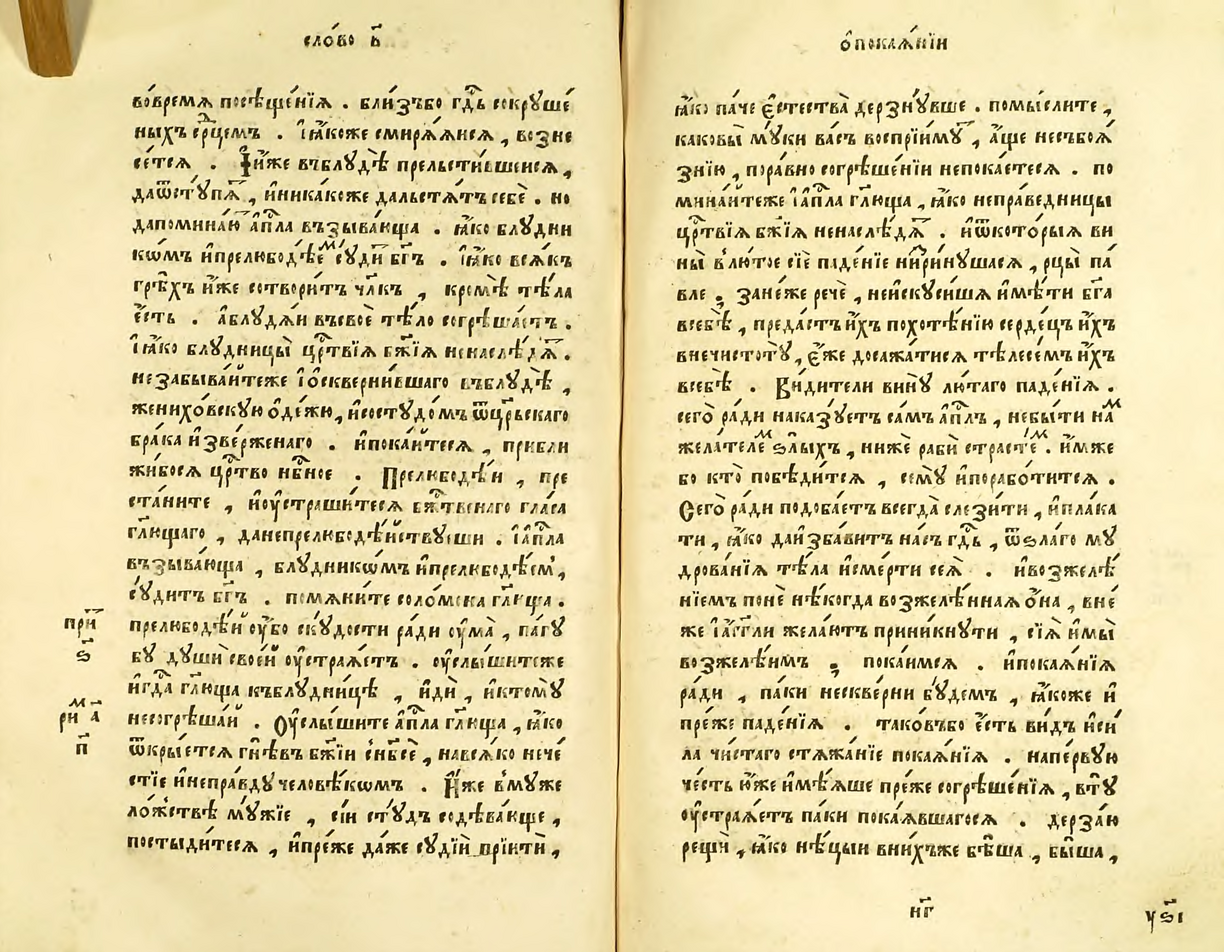 сло́во в҃
вовремѧ посѣще́нїѧ . бли́зъбо гдⷭ҇ь сокрꙋше́
ныхъ срⷣцемъ . і҆ ꙗ҆́коже смирѧ́ѧисѧ , возне
се́тсѧ . І҆и҆́же въблꙋ́дѣ прельсти́вшеисѧ ,
даѿстꙋ́пѧⷮ , и҆никакоже дальстѧ́тъ себѐ . но
дапомина́ю а҆пⷭ҇ла възыва́юща . ꙗ҆́ко блꙋдни
кѡ́мъ и҆прелюбодѣ́еⷨ сꙋ́дитъ бг҃ъ . і҆ ꙗ҆́ко всѧ́къ
грѣ́хъ и҆́же сотвори́тъ чл҃къ , кромѣ̀ тѣ́ла
є҆́сть . а҆блꙋдѧ́и въсвоѐ тѣ́ло согрѣша́етъ .
і҆ ꙗ҆́ко блꙋдницы̀ црⷭ҇твїѧ бж҃їѧ ненаслѣ́дѧⷮ .
незабыва́йтеже і҆ ѡ҆скверни́вшаго въблꙋ́дѣ ,
женихо́вскꙋю ѻ҆де́жю , и҆состꙋдо́мъ ѿцр҃ьскаго
бра́ка и҆зве́рженаго . и҆пока́йтесѧ , прибли́
жибосѧ црⷭ҇тво нбⷭ҇ное . Прелюбодѣ́и , пре
ста́ните , и҆оу҆страши́тесѧ бжⷭ҇твенаго гла́са
гл҃ющаго , данепрелюбодѣ́йствꙋеши . і҆ а҆пⷭ҇ла
възыва́юща , блꙋдникѡмъ и҆прелюбодѣ́ем ,
сꙋ́дитъ бг҃ъ . помѧни́те соломо́на гл҃юща .
прелюбодѣ́й оу҆́бо скꙋ́дости ра́ди оу҆ма̀ , па́гꙋ
бꙋ дꙋшѝ свое́й оу҆стра́ѧетъ . оу҆слы́шитеже
и҆гдⷭ҇а гл҃юща къблꙋдни́цѣ , и҆дѝ , и҆ктомꙋ̀
несогрѣша́й . Оу҆слы́шите а҆пⷭ҇ла гл҃юща , ꙗ҆́ко
ѿкры́етсѧ гнѣ́въ бж҃їи снб҃сѐ , навсѧ́ко нече́
стїе и҆непра́вдꙋ человѣ́кѡмъ . И҆́же вмꙋже
ло́жствѣ мꙋ́жїе , сїи стꙋ́дъ содѣва́юще ,
постыди́тесѧ , и҆пре́же да́же сꙋдїѝ прїити ,
при́ⷮ
ѕ҃
риⷨ а҃
п҃
ѻ҆покаѧ́нїи
ꙗ҆́ко па́че є҆стества̀ дерзнꙋ́вше . помы́слите ,
каковы̀ мꙋ́ки ва́съ воспрїи́мꙋⷮ , а҆́ще несъбоѧ́
знїю , пора́вно согрѣше́нїи непока́етесѧ . по
мина́йтеже і҆ а҆пⷭ҇ла гл҃юща , ꙗ҆́ко непра́ведницы
црⷭ҇твїѧ бж҃їѧ ненаслѣ́дѧⷮ . и҆ѿкоторы́ѧ ви
ны̀ влю́тое сїѐ паде́нїе нири́нꙋшасѧ , рцы̀ па́
вле ; Зане́же речѐ , неи҆скꙋси́шѧ и҆мѣ́ти бг҃а
всебѣ̀ , предастъ и҆́хъ похотѣ́нїю серде́цъ и҆́хъ
внечистотꙋ̀ , є҆́же досажа́тисѧ тѣлесе́мъ и҆́хъ
всебѣ̀ . Ви́дители винꙋ̀ лю́таго паде́нїѧ .
сего̀ ра́ди наказꙋ́етъ са́мъ а҆пⷭ҇лъ , небы́ти на́ⷨ
жела́телеⷨ ѕлы́хъ , нижѐ рабѝ страсте́ⷨ . и҆́мже
бо кто̀ побѣди́тсѧ , семꙋ̀ и҆порабо́титсѧ .
Сего̀ ра́ди подоба́етъ всегда̀ слези́ти , и҆пла́ка
ти , ꙗ҆́ко даи҆зба́витъ на́съ гдⷭ҇ь , ѿѕла́го мꙋ́
дрованїѧ тѣ́ла и҆сме́рти сеѧ̀ . и҆возжелѣ́
нїемъ понѐ нѣ́когда возжелѣ́ннаѧ ѻ҆́на , вне́
же і҆ а҆́гг҃ли жела́ютъ прини́кнꙋти , сїѧ̀ и҆мы̀
возжелѣ́имъ ; пока́имсѧ . и҆покаѧ́нїѧ
ра́ди , па́ки нескве́рни бꙋ́демъ , ꙗ҆́коже и҆
пре́же паде́нїѧ . тако́въбо є҆́сть ви́дъ и҆си́
ла чи́стаго стѧжа́нїе покаѧ́нїѧ . напе́рвꙋю
че́сть ю҆́же и҆мѣ́ѧше пре́же согрѣше́нїѧ , втꙋ́
оу҆стра́ѧетъ па́ки пока́ѧвшагосѧ . дерза́ю
рещѝ , ꙗ҆́ко нѣ́цыи вни́хъже бѣ́ша , бы́ша ,
нг҃
уѕ҃і